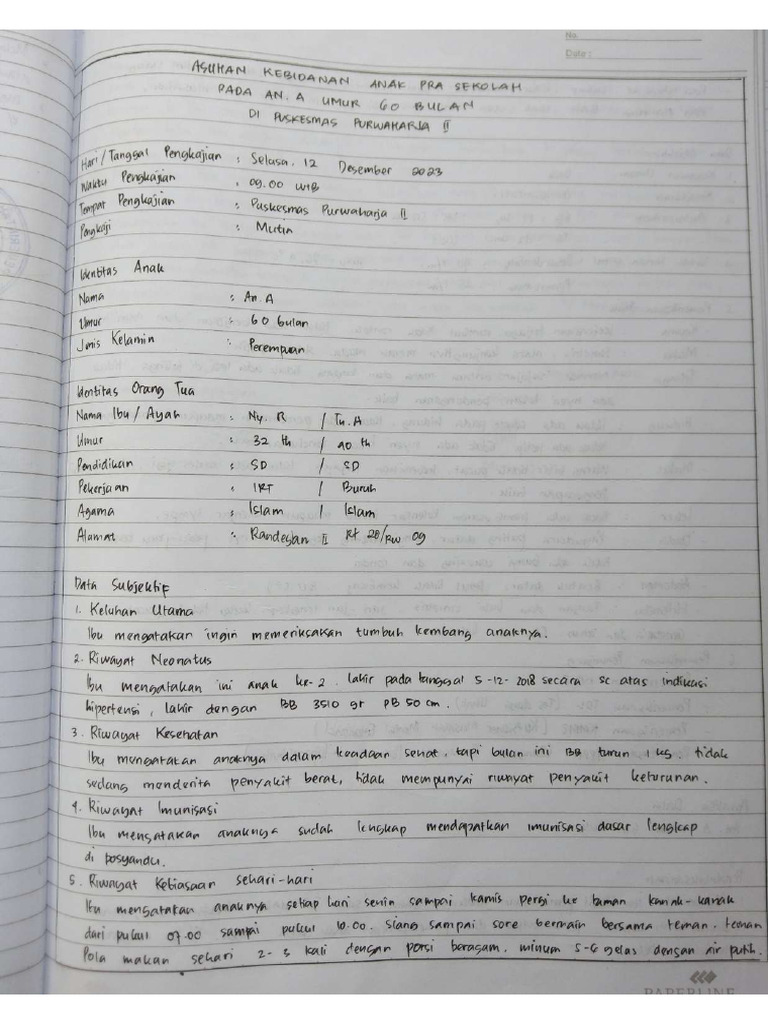 No.
Date :
ASUHAN KEBIDANAN ANAK PRA SEKOLAH
PADA AN. A UMUR 60 BULAN
DI PUSKESMAS PURWAHARJA II
Hari / Tanggal Pengkajian : Selasa, 12 Desember 2023
Waktu Pengkajian : 09.00 WIB
Tempat Pengkajian : Puskesmas Purwaharja II
Pengkaji : Mutia
Identitas Anak
Nama : An. A
Umur : 60 bulan
Jenis Kelamin : Perempuan
Identitas Orang Tua
Nama Ibu / Ayah : Ny. R / Tn. A
Umur : 32 th / 40 th
Pendidikan : SD / SD
Pekerjaan : IRT / Buruh
Agama : Islam / Islam
Alamat : Randegan II Rt 28/RW 09
Data Subjektif
1. Keluhan Utama
Ibu mengatakan ingin memeriksakan tumbuh kembang anaknya.
2. Riwayat Neonatus
Ibu mengatakan ini anak ke-2. lahir pada tanggal 5-12-2018 secara sc atas indikasi
hipertensi, lahir dengan BB 3510 gr PB 50 cm.
3. Riwayat Kesehatan
Ibu mengatakan anaknya dalam keadaan sehat, tapi bulan ini BB turun 1 kg. tidak
sedang menderita penyakit berat, tidak mempunyai riwayat penyakit keturunan.
4. Riwayat Imunisasi
Ibu mengatakan anaknya sudah lengkap mendapatkan imunisasi dasar lengkap
di posyandu.
5. Riwayat Kebiasaan sehari-hari
Ibu mengatakan anaknya setiap hari senin sampai kamis pergi ke taman kanak-kanak
dari pukul 07.00 sampai pukul 10.00. siang sampai sore bermain bersama teman-teman
Pola makan sehari 2-3 kali dengan porsi beragam. minum 5-6 gelas dengan air putih.
PAPERLINE